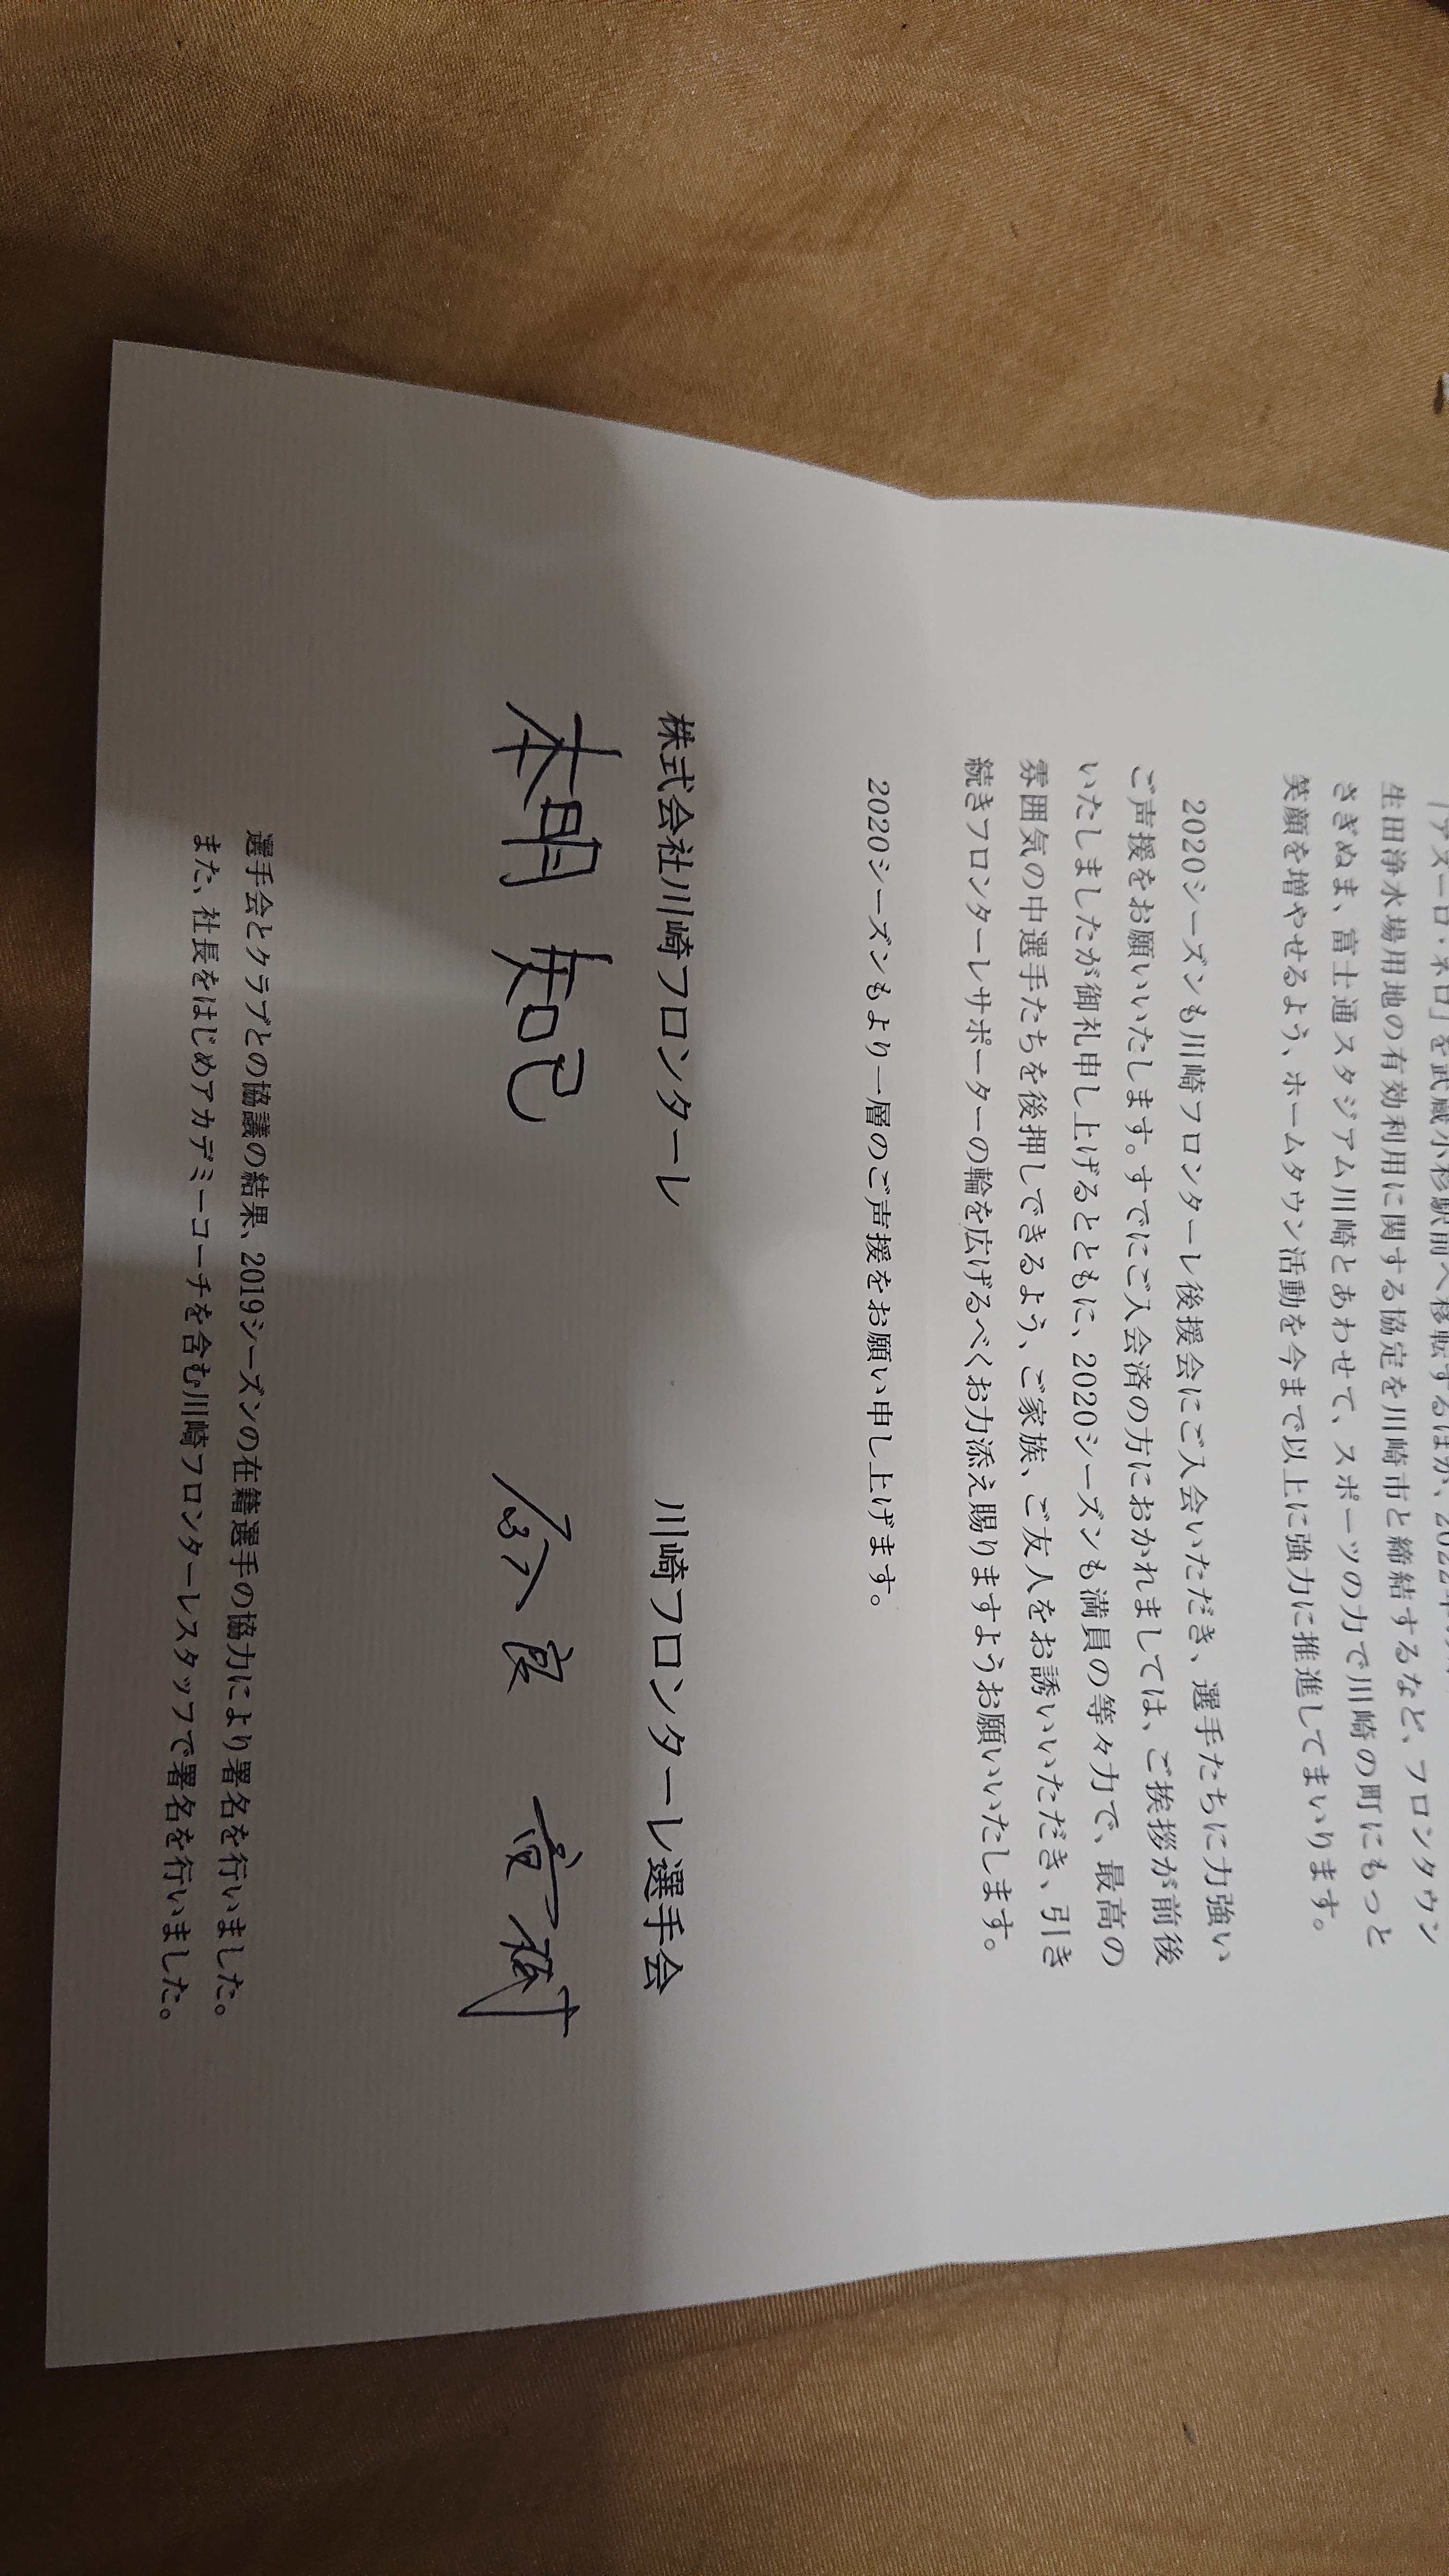 「アズーロ・ネロ」を武蔵小杉駅前へ移転するほか、2022年
生田浄水場用地の有効利用に関する協定を川崎市と締結するなど、フロンタウン
さぎぬま、富士通スタジアム川崎とあわせて、スポーツの力で川崎の町にもっと
笑顔を増やせるよう、ホームタウン活動を今まで以上に強力に推進してまいります。
2020シーズンも川崎フロンターレ後援会にご入会いただき、選手たちに力強い
ご声援をお願いいたします。すでにご入会済の方におかれましては、ご挨拶が前後
いたしましたが御礼申し上げるとともに、2020シーズンも満員の等々力で、最高の
雰囲気の中選手たちを後押しできるよう、ご家族、ご友人をお誘いいただき、引き
続きフロンターレサポーターの輪を広げるべくお力添え賜りますようお願いいたします。
2020シーズンもより一層のご声援をお願い申し上げます。
株式会社川崎フロンターレ 川崎フロンターレ選手会
知己 奈良 竜樹
選手会とクラブとの協議の結果、2019シーズンの在籍選手の協力により署名を行いました。
また、社長をはじめアカデミーコーチを含む川崎フロンターレスタッフで署名を行いました。